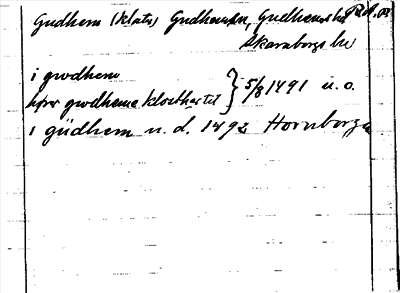 Gudhem (klster) Gudhems sn, Gudhems hd
Skaraborgs län
i gwdhem
hører gwdhema klosther til } 5/8 1491 u. o.
i güdhem u. d. 1492 Hornborga